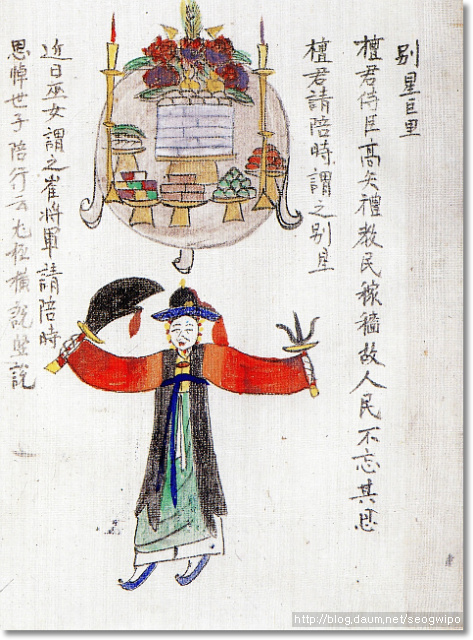 别星巨里
檀君侍臣高矢禮教民稼穡故人民不忘其恩
檀君請陪時謂之别星
近日巫女謂之崔將軍請陪時
思悼世子陪行云尤極橫說竪說
http://blog.daum.net/seogwipo